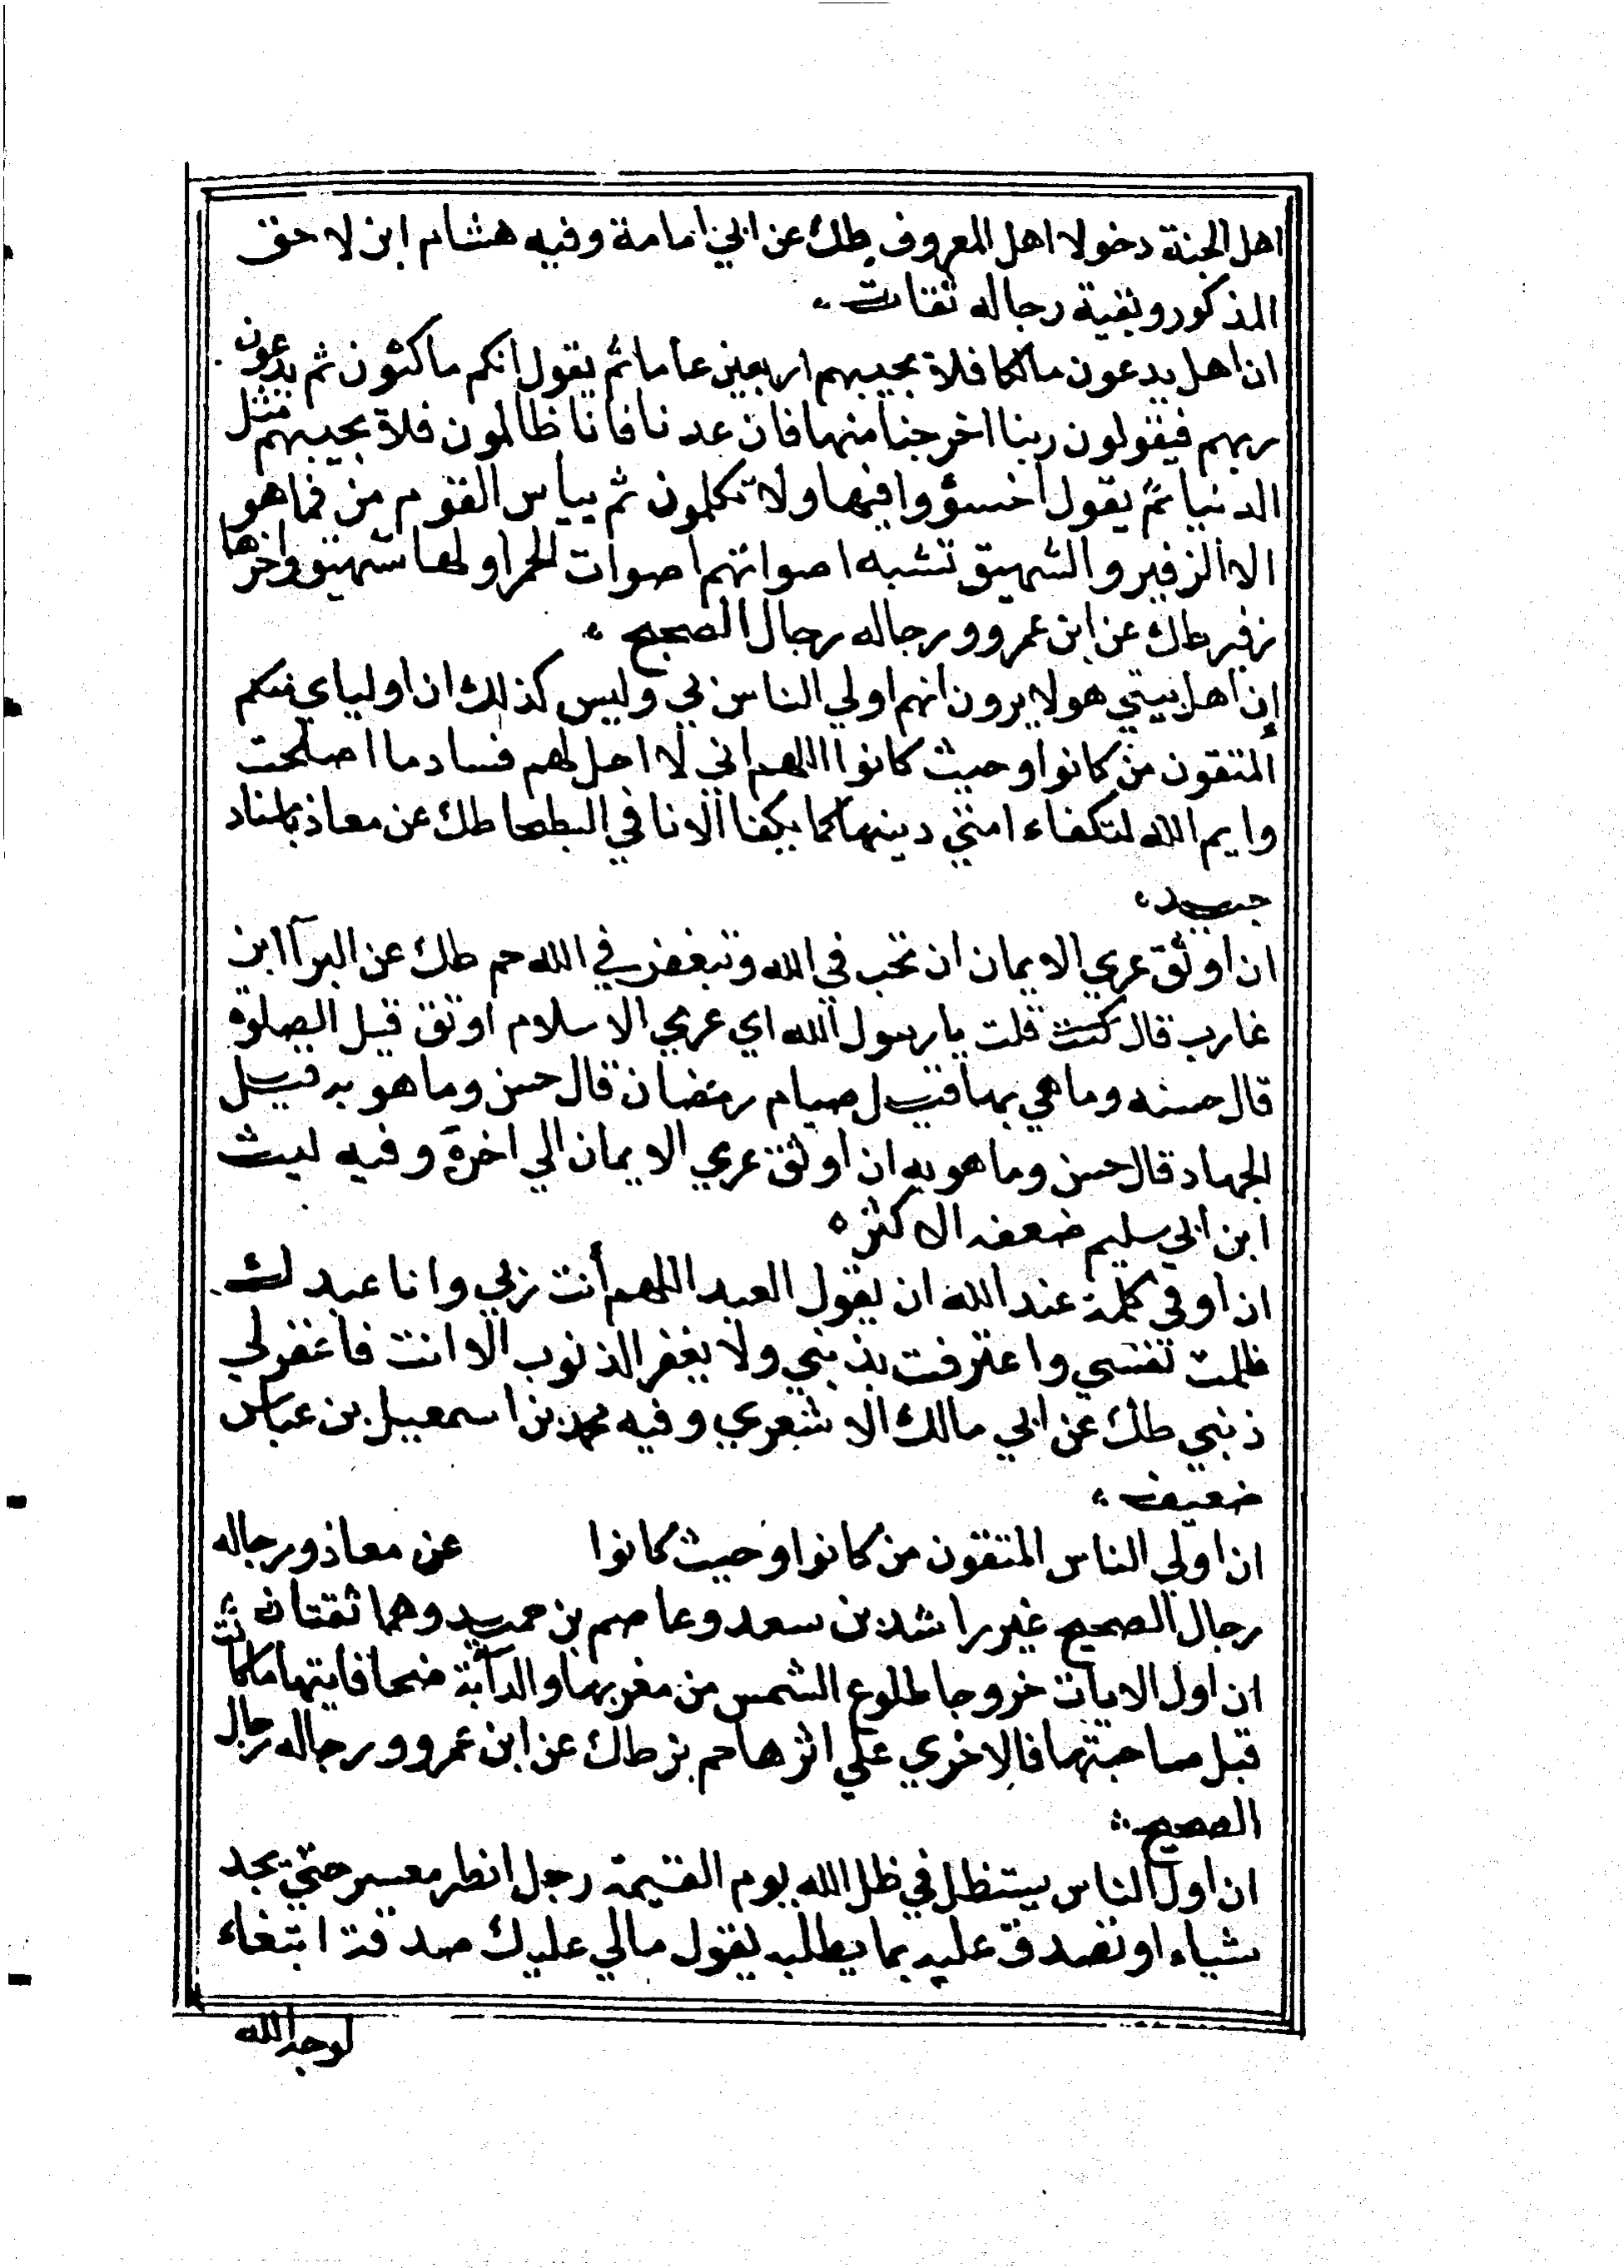 اهل الجنة دخولا اهل المعروف طك عن ابي امامة وفيه هشام ابن لاحق
المذكور وبقية رجاله ثقات
ان اهل يدعون مالكا فلاة يجيبهم اربعين عاما ثم يقول انكم ماكثون ثم يدعون
ربهم فيقولون ربنا اخرجنا منها فان عدنا فانا ظالمون فلاة يجيبهم مثل
الدنيا ثم يقول اخسؤوا فيها ولا تكلمون ثم ييأس القوم من فما هو
الا الزفير والشهيق تشبه اصواتهم اصوات الحمر اولها شهيق واخرها
زفير طك عن ابن عمرو ورجاله رجال الصحيح
إن اهل بيتي هولا يرون انهم اولي الناس بي وليس كذلك ان اولياي منكم
المتقون من كانوا وحيث كانوا اللهم اني لا احل لهم فساد ما اصلحت
وايم الله لتكفاء امتي دينها كما يكفا الانا في البطحا طك عن معاذ باسناد
جيد
ان اوثق عري الايمان ان تحب في الله وتبغض في الله حم طك عن البرآ ابن
غارب قال كنت قلت يا رسول الله اي عري الاسلام اوثق قيل الصلوة
قال حسنه وما هي بها قيل صيام رمضان قال حسن وما هو به قيل
الجهاد قال حسن وما هو به ان اوثق عري الايمان الي اخره وفيه ليث
ابن ابي سليم ضعفه الاكثر
ان اوفي كلمة عند الله ان يقول العبد اللهم أنت ربي وانا عبدك
ظلمت نفسي واعترفت بذنبي ولا يغفر الذنوب الا انت فاغفر لي
ذنبي طك عن ابي مالك الاشعري وفيه محمد بن اسمعيل بن عباس
ضعيف
ان اولي الناس المتقون من كانوا وحيث كانوا عن معاذ ورجاله
رجال الصحيح غير راشد بن سعد وعاصم بن حميد وهما ثقتان
ان اول الايات خروجا طلوع الشمس من مغربها والدآبة ضحا فايتها ما كانت
قبل صاحبتها فالاخري علي اثرها حم بز طك عن ابن عمرو ورجاله رجال
الصحيح
ان اول الناس يستظل في ظل الله يوم القيمة رجل انظر معسر حتي يجد
شياء او تصدق عليه بما يطلبه يقول مالي عليك صدقة ابتغاء
لوجه الله